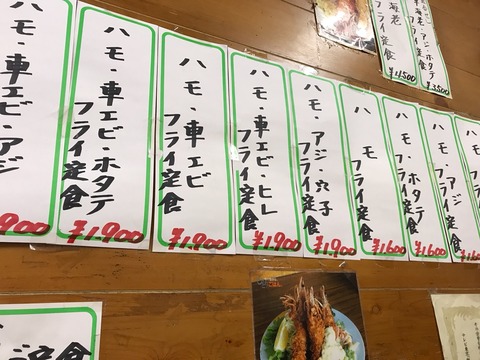 海老・アジ・ホタテ
フライ定食
¥3,500
海老
フライ定食
¥1,500
ハモ・アジ
フライ定食
ハモ・ホタテ
フライ定食
¥1,600
ハモ
フライ定食
¥1,600
ハモ・アジ・穴子
フライ定食
¥1,900
ハモ・車エビ・ヒレ
フライ定食
¥1,900
ハモ・車エビ
フライ定食
¥1,900
ハモ・車エビ・ホタテ
フライ定食
¥1,900
ハモ・車エビ・アジ
900
定食